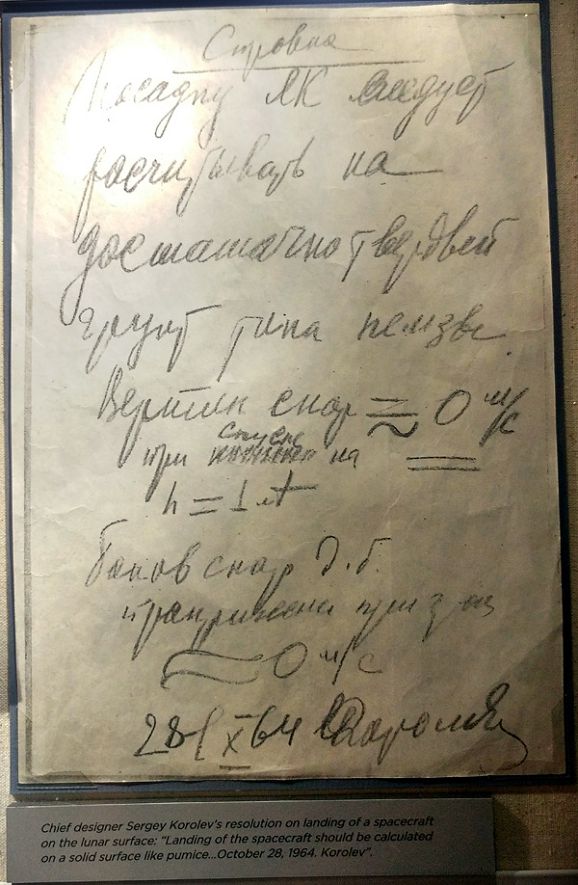 Справка
Посадку ЛК следует
расчитывать на
достаточно твердый
грунт типа пемзы
Вертик скор ≈ 0 м/с
спуске
при на
h = 1 м
Боков скор д.б.
≈ 0 м/с
28/X 64 Королев
Chief designer Sergey Korolev's resolution on landing of a spacecraft
on the lunar surface: "Landing of the spacecraft should be calculated
on a solid surface like pumice...October 28, 1964. Korolev".